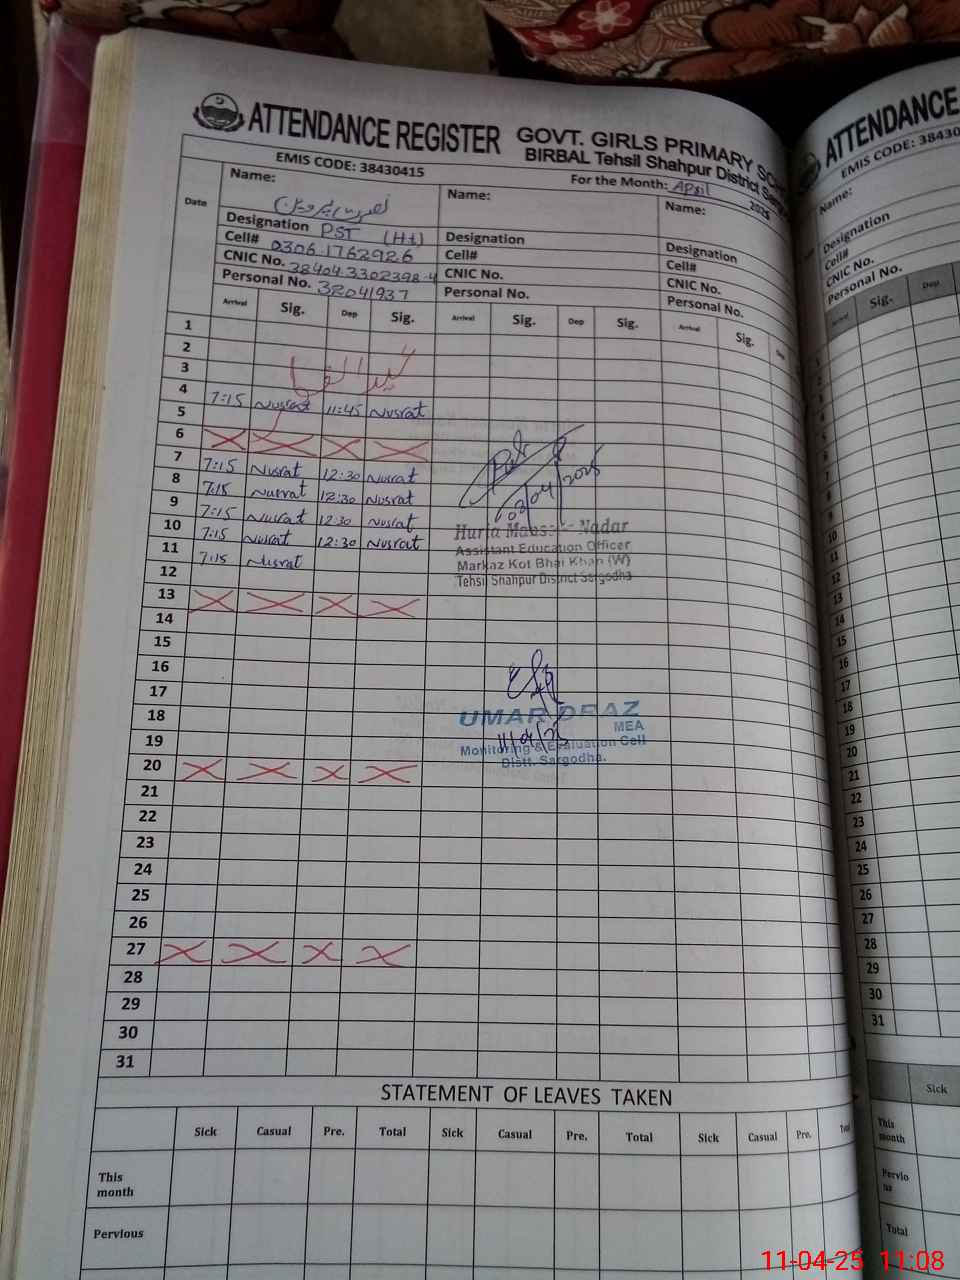 ATTENDANCE REGISTER GOVT. GIRLS PRIMARY
BIRBAL Tehsil Shahpur District
EMIS CODE: 38430415
For the Month: April 2025
Name: Name: Name:
نصرت پروین
Designation PST (Ht) Designation Designation
Cell# 0306.1762926 Cell# Cell#
CNIC No. 38404.3302398.4 CNIC No. CNIC No.
Personal No. 32041937 Personal No. Personal No.
Date Arrival Sig. Dep Sig. Arrival Sig. Dep Sig. Arrival Sig.
1
2
3
عید الفطر
4
5 7:15 Nusrat 11:45 Nusrat
6
7 7:15 Nusrat 12:30 Nusrat
8 7:15 Nusrat 12:30 Nusrat
9 7:15 Nusrat 12:30 Nusrat
10 7:15 Nusrat 12:30 Nusrat
11 7:15 Nusrat
12
13
14
15
16
17
18
19
20
21
22
23
24
25
26
27
28
29
30
31
08/04/2025
Huria Nadar
Assistant Education Officer
Markaz Kot Bhai Khan (W)
Tehsil Shahpur District Sargodha
UMAR
MEA
11/04/25
Monitoring & Evaluation Cell
Distt. Sargodha.
STATEMENT OF LEAVES TAKEN
Sick Casual Pre. Total Sick Casual Pre. Total Sick Casual Pre.
This month
Pervious
ATTENDANCE
EMIS CODE: 38430
Name:
Designation
Cell#
CNIC No.
Personal No.
Arrival Sig. Dep
4
5
6
7
8
9
10
11
12
13
14
15
16
17
18
19
20
21
22
23
24
25
26
27
28
29
30
31
Sick
This month
Pervio us
Total
11-04-25 11:08